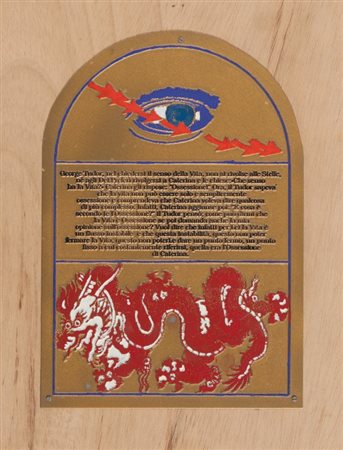 George Tudor, nel chiedersi il senso della Vita, non si rivolse alle Stelle,
nè agli Dei. Preferì rivolgersi a Caterina e le chiese «Che senso
ha la Vita?» Caterina gli rispose: "Ossessione!" Ora, il Tudor sapeva
che la vita non può essere solo e semplicemente
ossessione e comprendeva che Caterina voleva dire qualcosa
di più complesso. Infatti, Caterina aggiunse poi: "E cosa è
secondo te l'Ossessione?" il Tudor pensò: come può darsi che
la Vita è Ossessione se poi domanda poi anche la mia
opinione sull'ossessione? Vuol dire che infatti per Lei la Vita è
un flusso instabile e che questa instabilità, questo non poter
fermare la Vita, questo non poterle dare un punto fermo, un punto
fisso a cui costantemente riferirsi, quella era l'Ossessione
di Caterina.